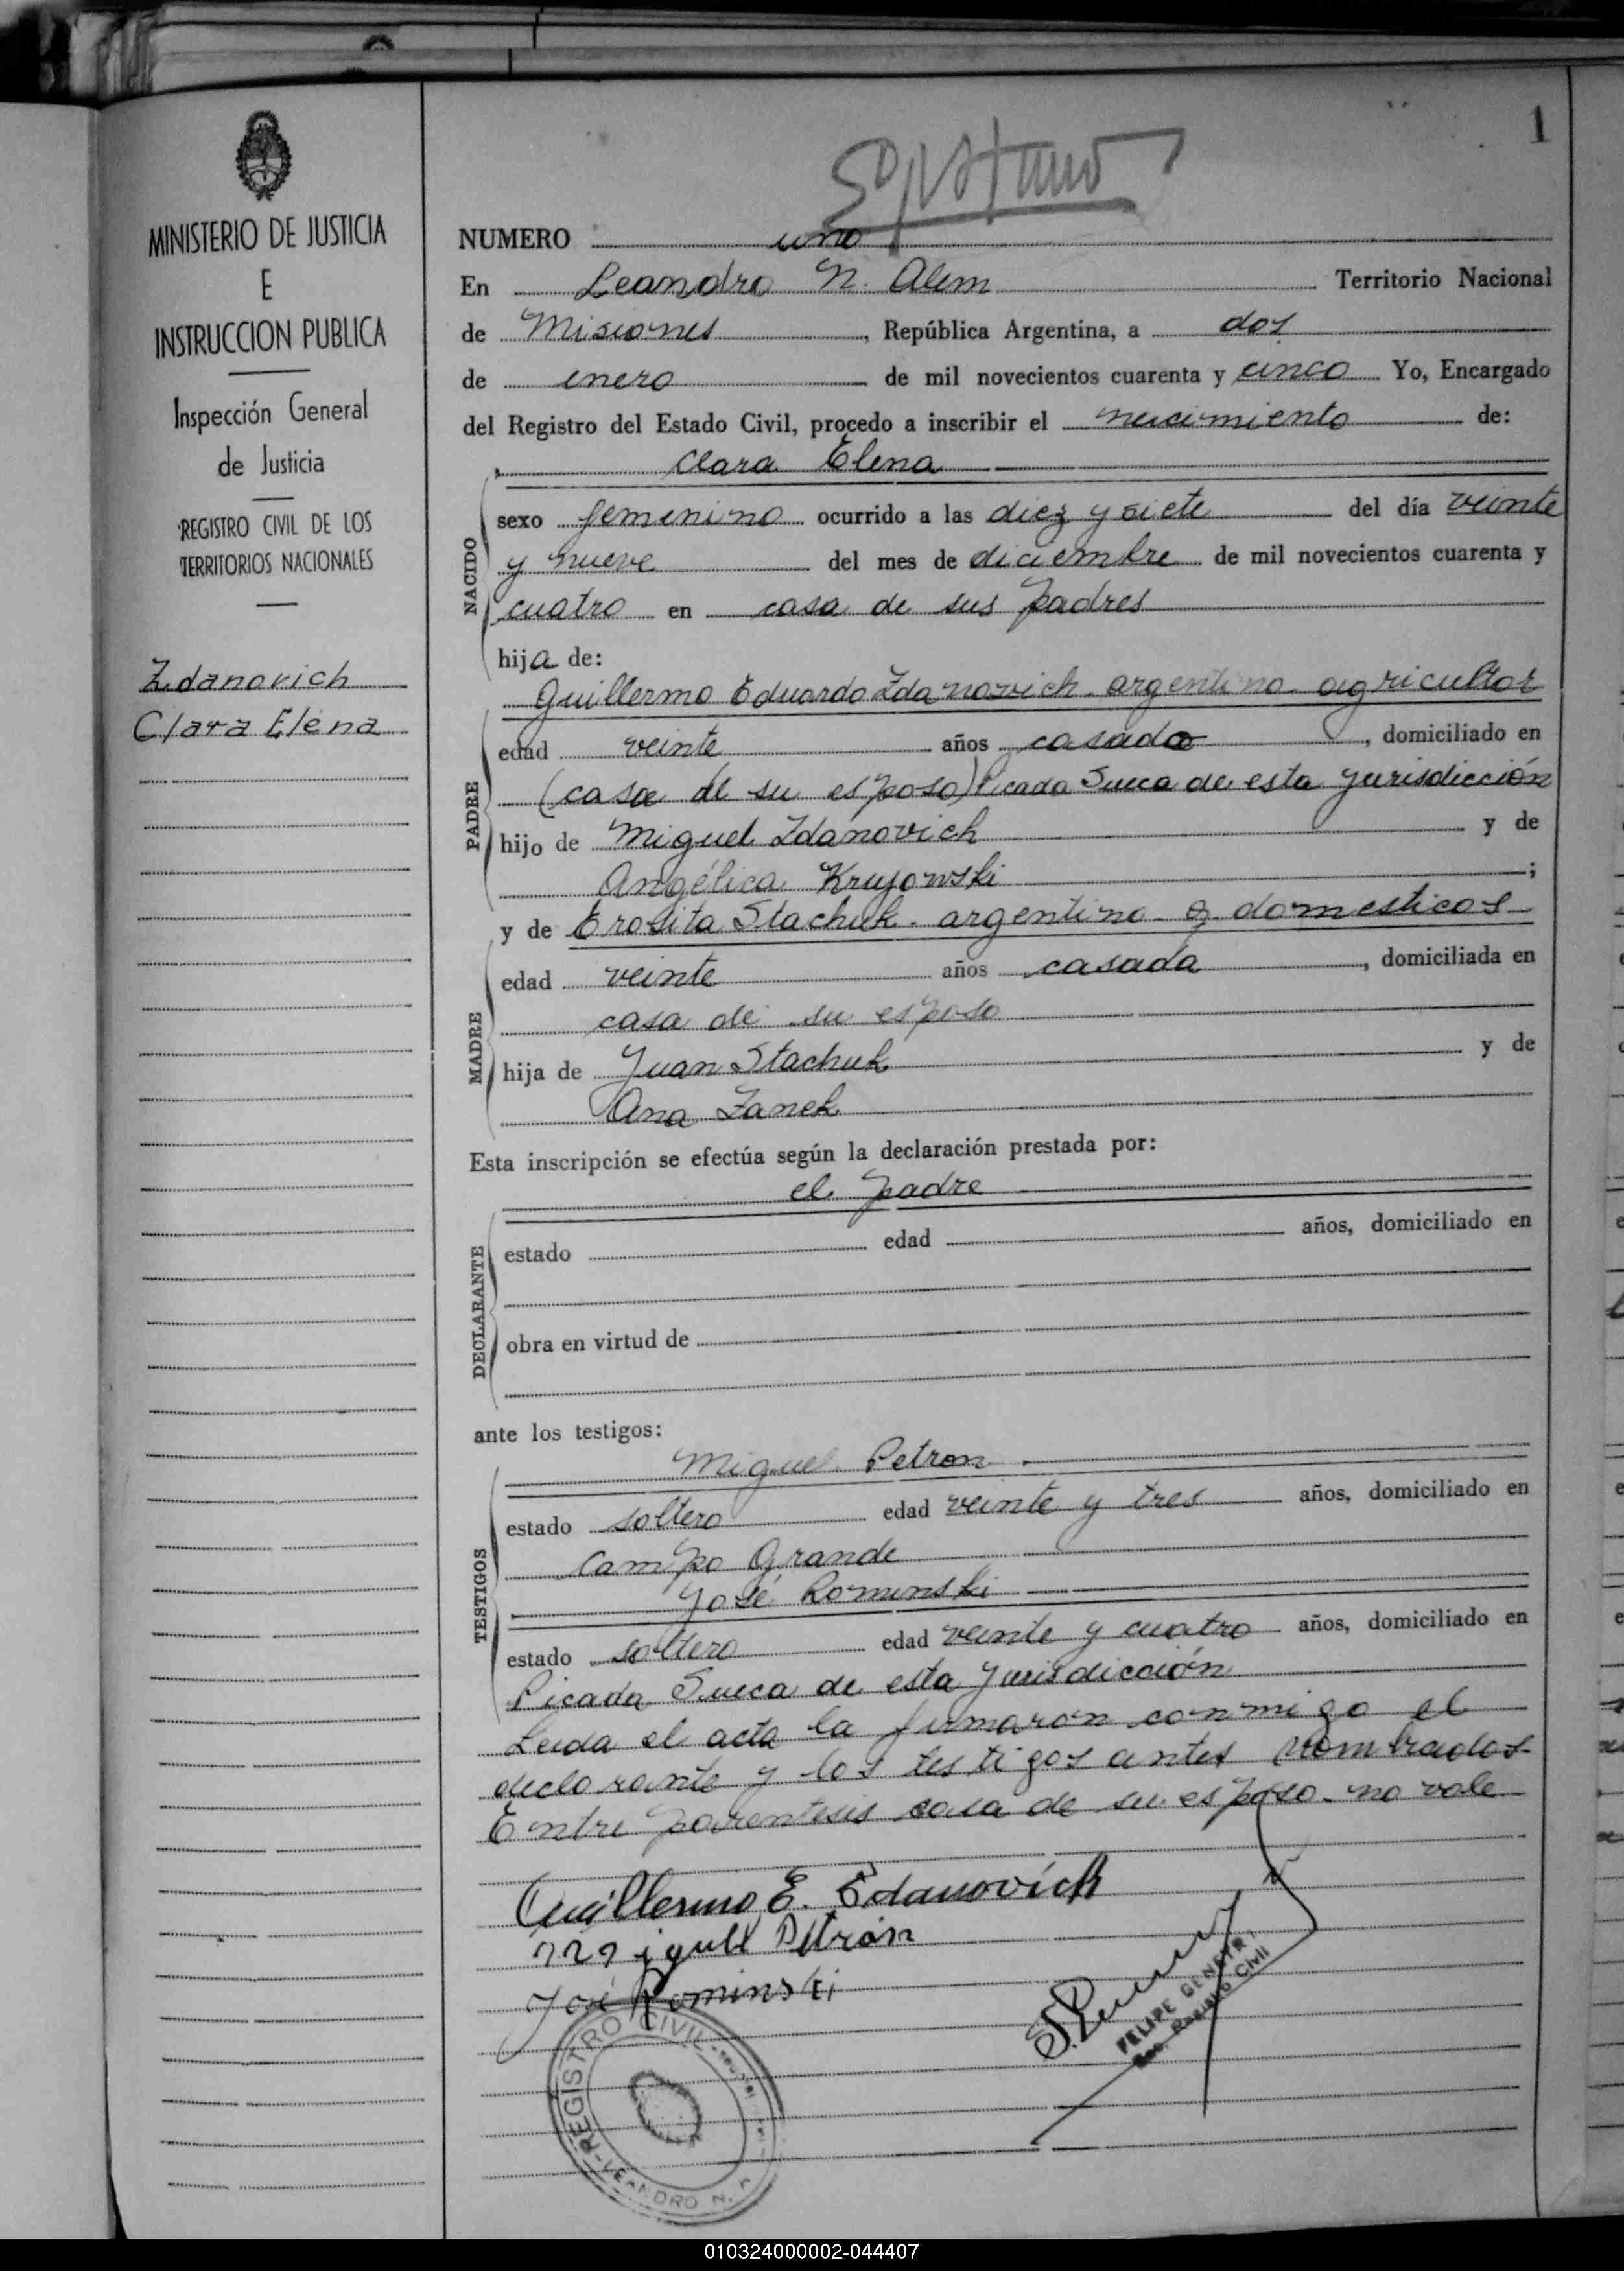 1
MINISTERIO DE JUSTICIA
E
INSTRUCCION PUBLICA
Inspección General
de Justicia
REGISTRO CIVIL DE LOS
TERRITORIOS NACIONALES
Zdanovich
Clara Elena
NUMERO uno
En Leandro N. Alem Territorio Nacional
de Misiones, República Argentina, a dos
de enero de mil novecientos cuarenta y cinco Yo, Encargado
del Registro del Estado Civil, procedo a inscribir el nacimiento de:
Clara Elena
NACIDO
sexo femenino ocurrido a las diez y siete del día veinte
y nueve del mes de diciembre de mil novecientos cuarenta y
cuatro en casa de sus padres
hija de:
PADRE
Guillermo Eduardo Zdanovich argentino agricultor
edad veinte años casado, domiciliado en
(casa de su esposo) Picada Sueca de esta jurisdicción
hijo de Miguel Zdanovich y de
Angélica Krujowski;
MADRE
y de Erosita Stachuk. argentina q. domesticos
edad veinte años casada, domiciliada en
casa de su esposo
hija de Juan Stachuk y de
Ana Zanek
Esta inscripción se efectúa según la declaración prestada por:
el padre
DECLARANTE
estado edad años, domiciliado en
obra en virtud de
ante los testigos:
TESTIGOS
Miguel Petron
estado soltero edad veinte y tres años, domiciliado en
Campo Grande
José Rominski
estado soltero edad veinte y cuatro años, domiciliado en
Picada Sueca de esta jurisdicción
Leida el acta la firmaron conmigo el
declarante y los testigos antes nombrados
Entre parentesis casa de su esposo no vale
Guillermo E. Zdanovich
Miguel Petrón
José Rominski
FELIPE
Registro Civil
REGISTRO CIVIL
LEANDRO N.
010324000002-044407